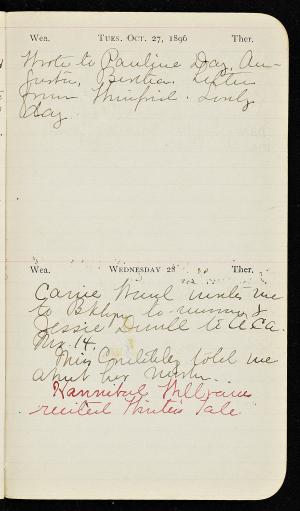 Wea. Tues. Oct. 27, 1896 Ther.
Wrote to Pauline Day, Au-
gusta, Bertha. Letter
from Winifred. Lovely
day.
Wea. Wednesday 28 Ther.
Carrie invites me
to to &
Jessie to A.C.A.
14.
Miss told me
about her
Hannibal Williams
recited Winter's Tale.